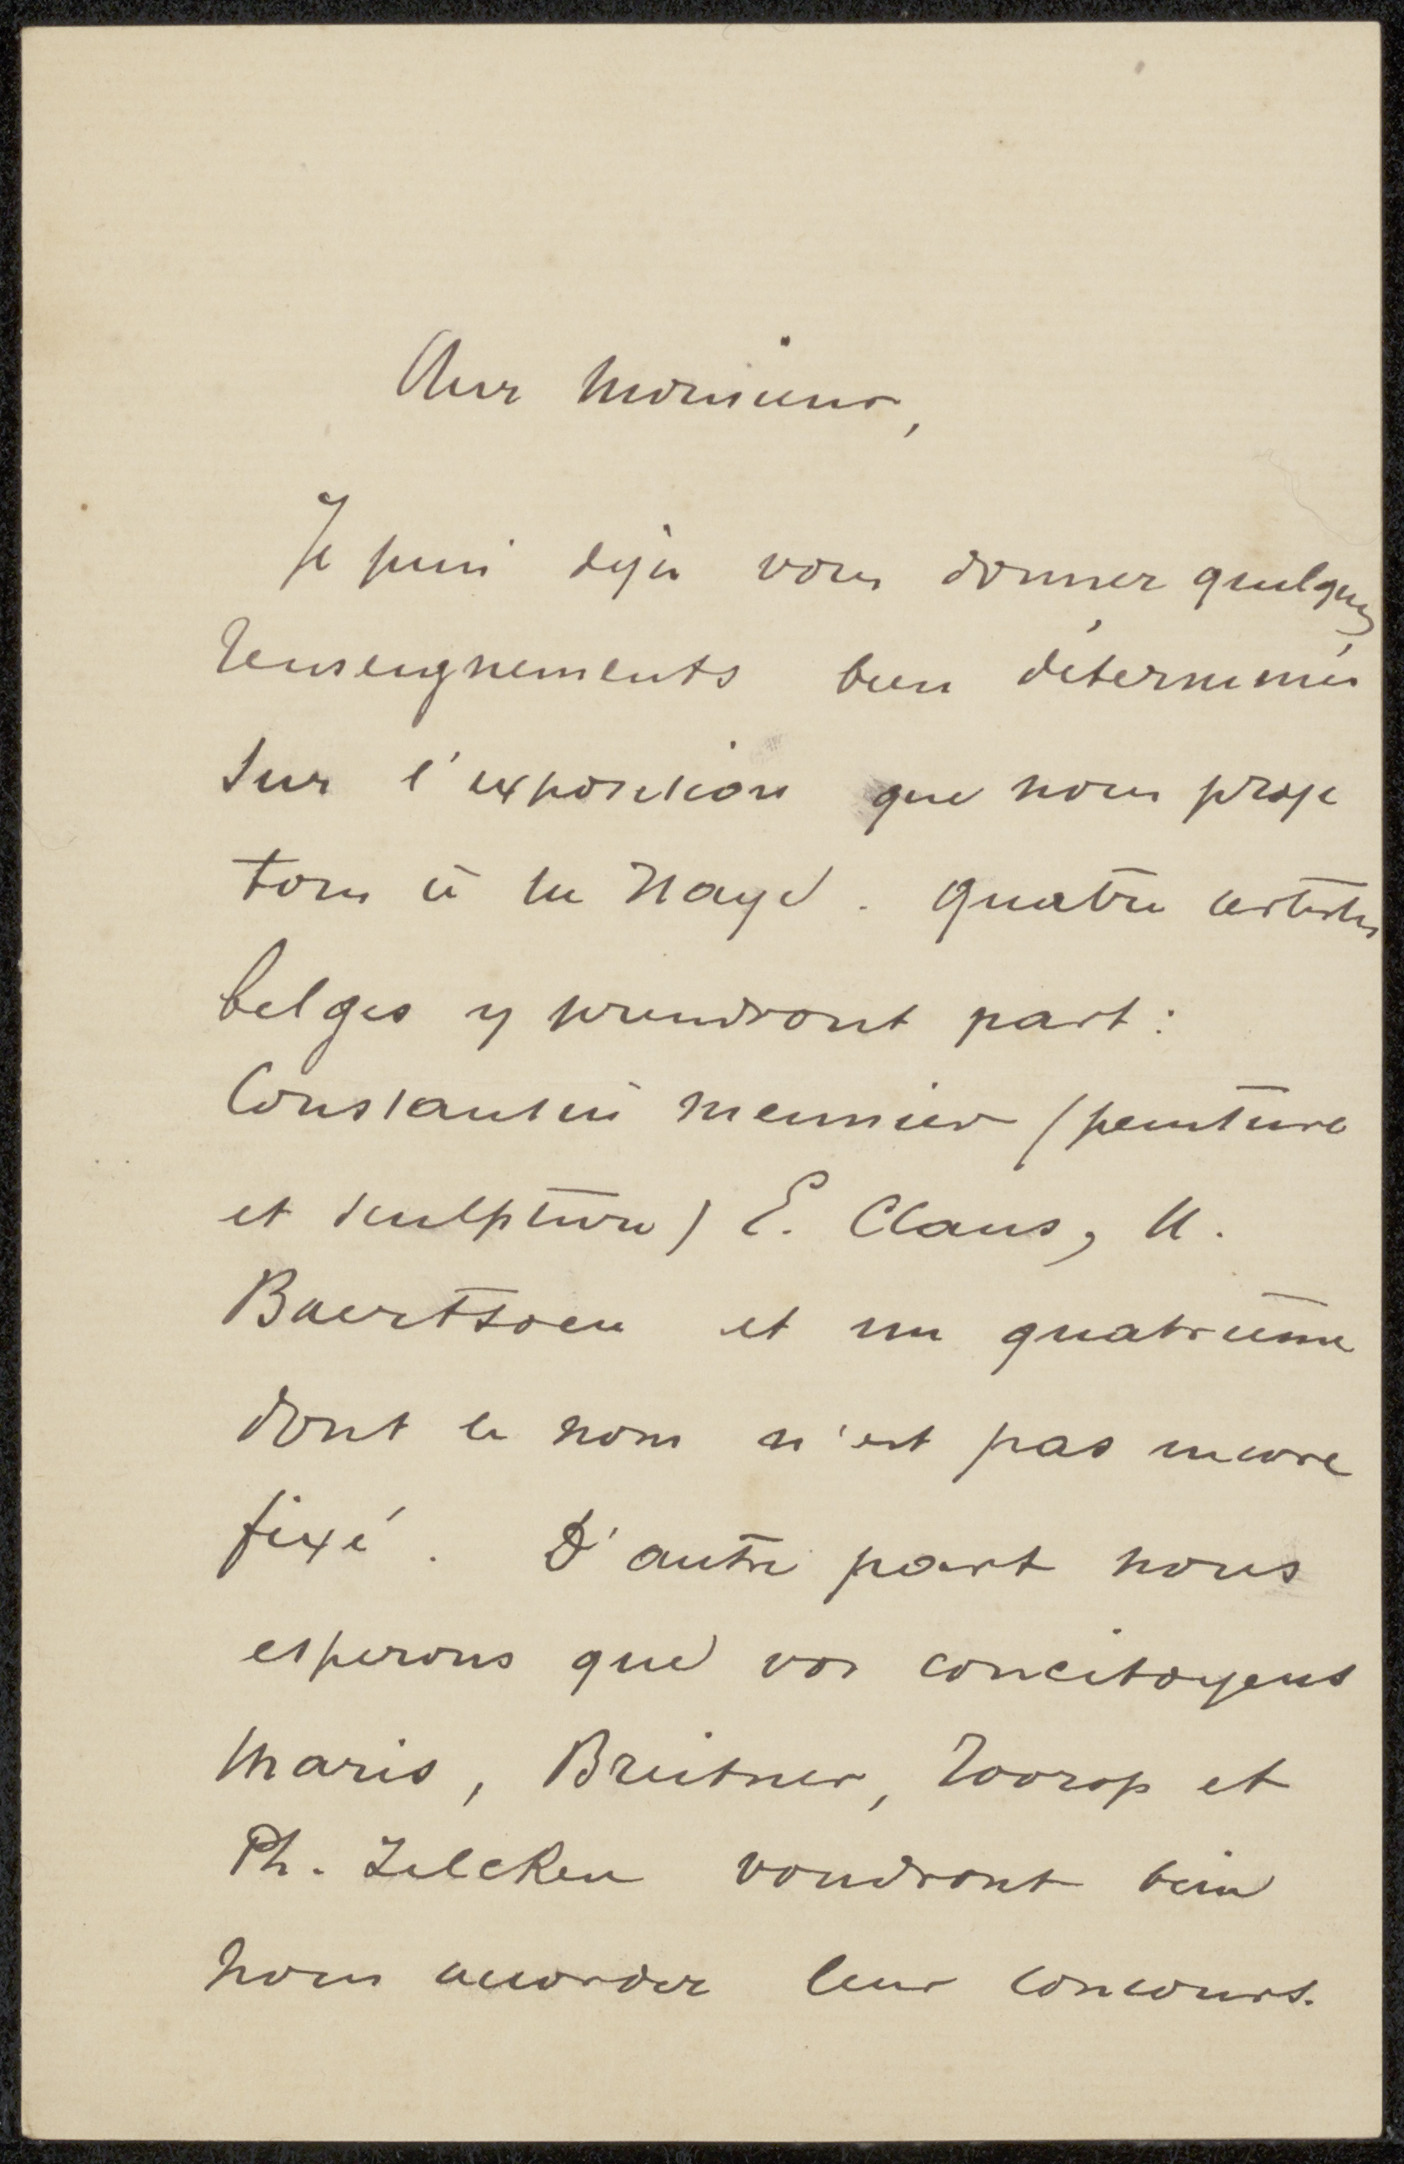 Cher Monsieur,
Je puis déjà vous donner quelques
renseignements bien déterminés
sur l'exposition que nous proje
tons à la Haye. Quatre artistes
belges y prendront part :
Constantin Meunier (peinture
et sculpture) E. Claus, A.
Baertsoen et un quatrième
dont le nom n'est pas encore
fixé. D'autre part nous
esperons que vos concitoyens
Maris, Breitner, Toorop et
Ph. Zilcken voudront bien
nous accorder leur concours.